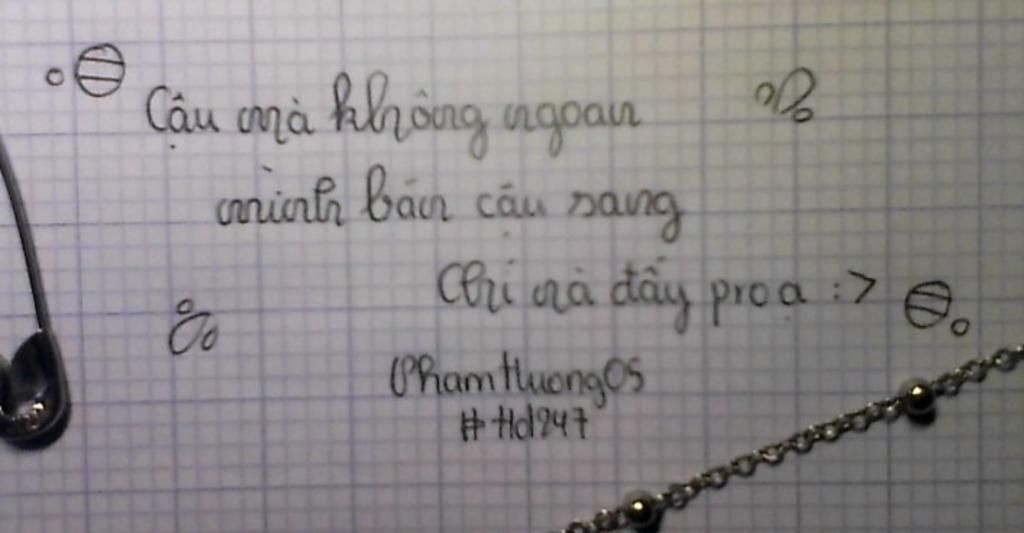 Cậu mà không ngoan
mình bán cậu sang
Chi na đấy pro ạ :>
PhamHuong05
#Hd247